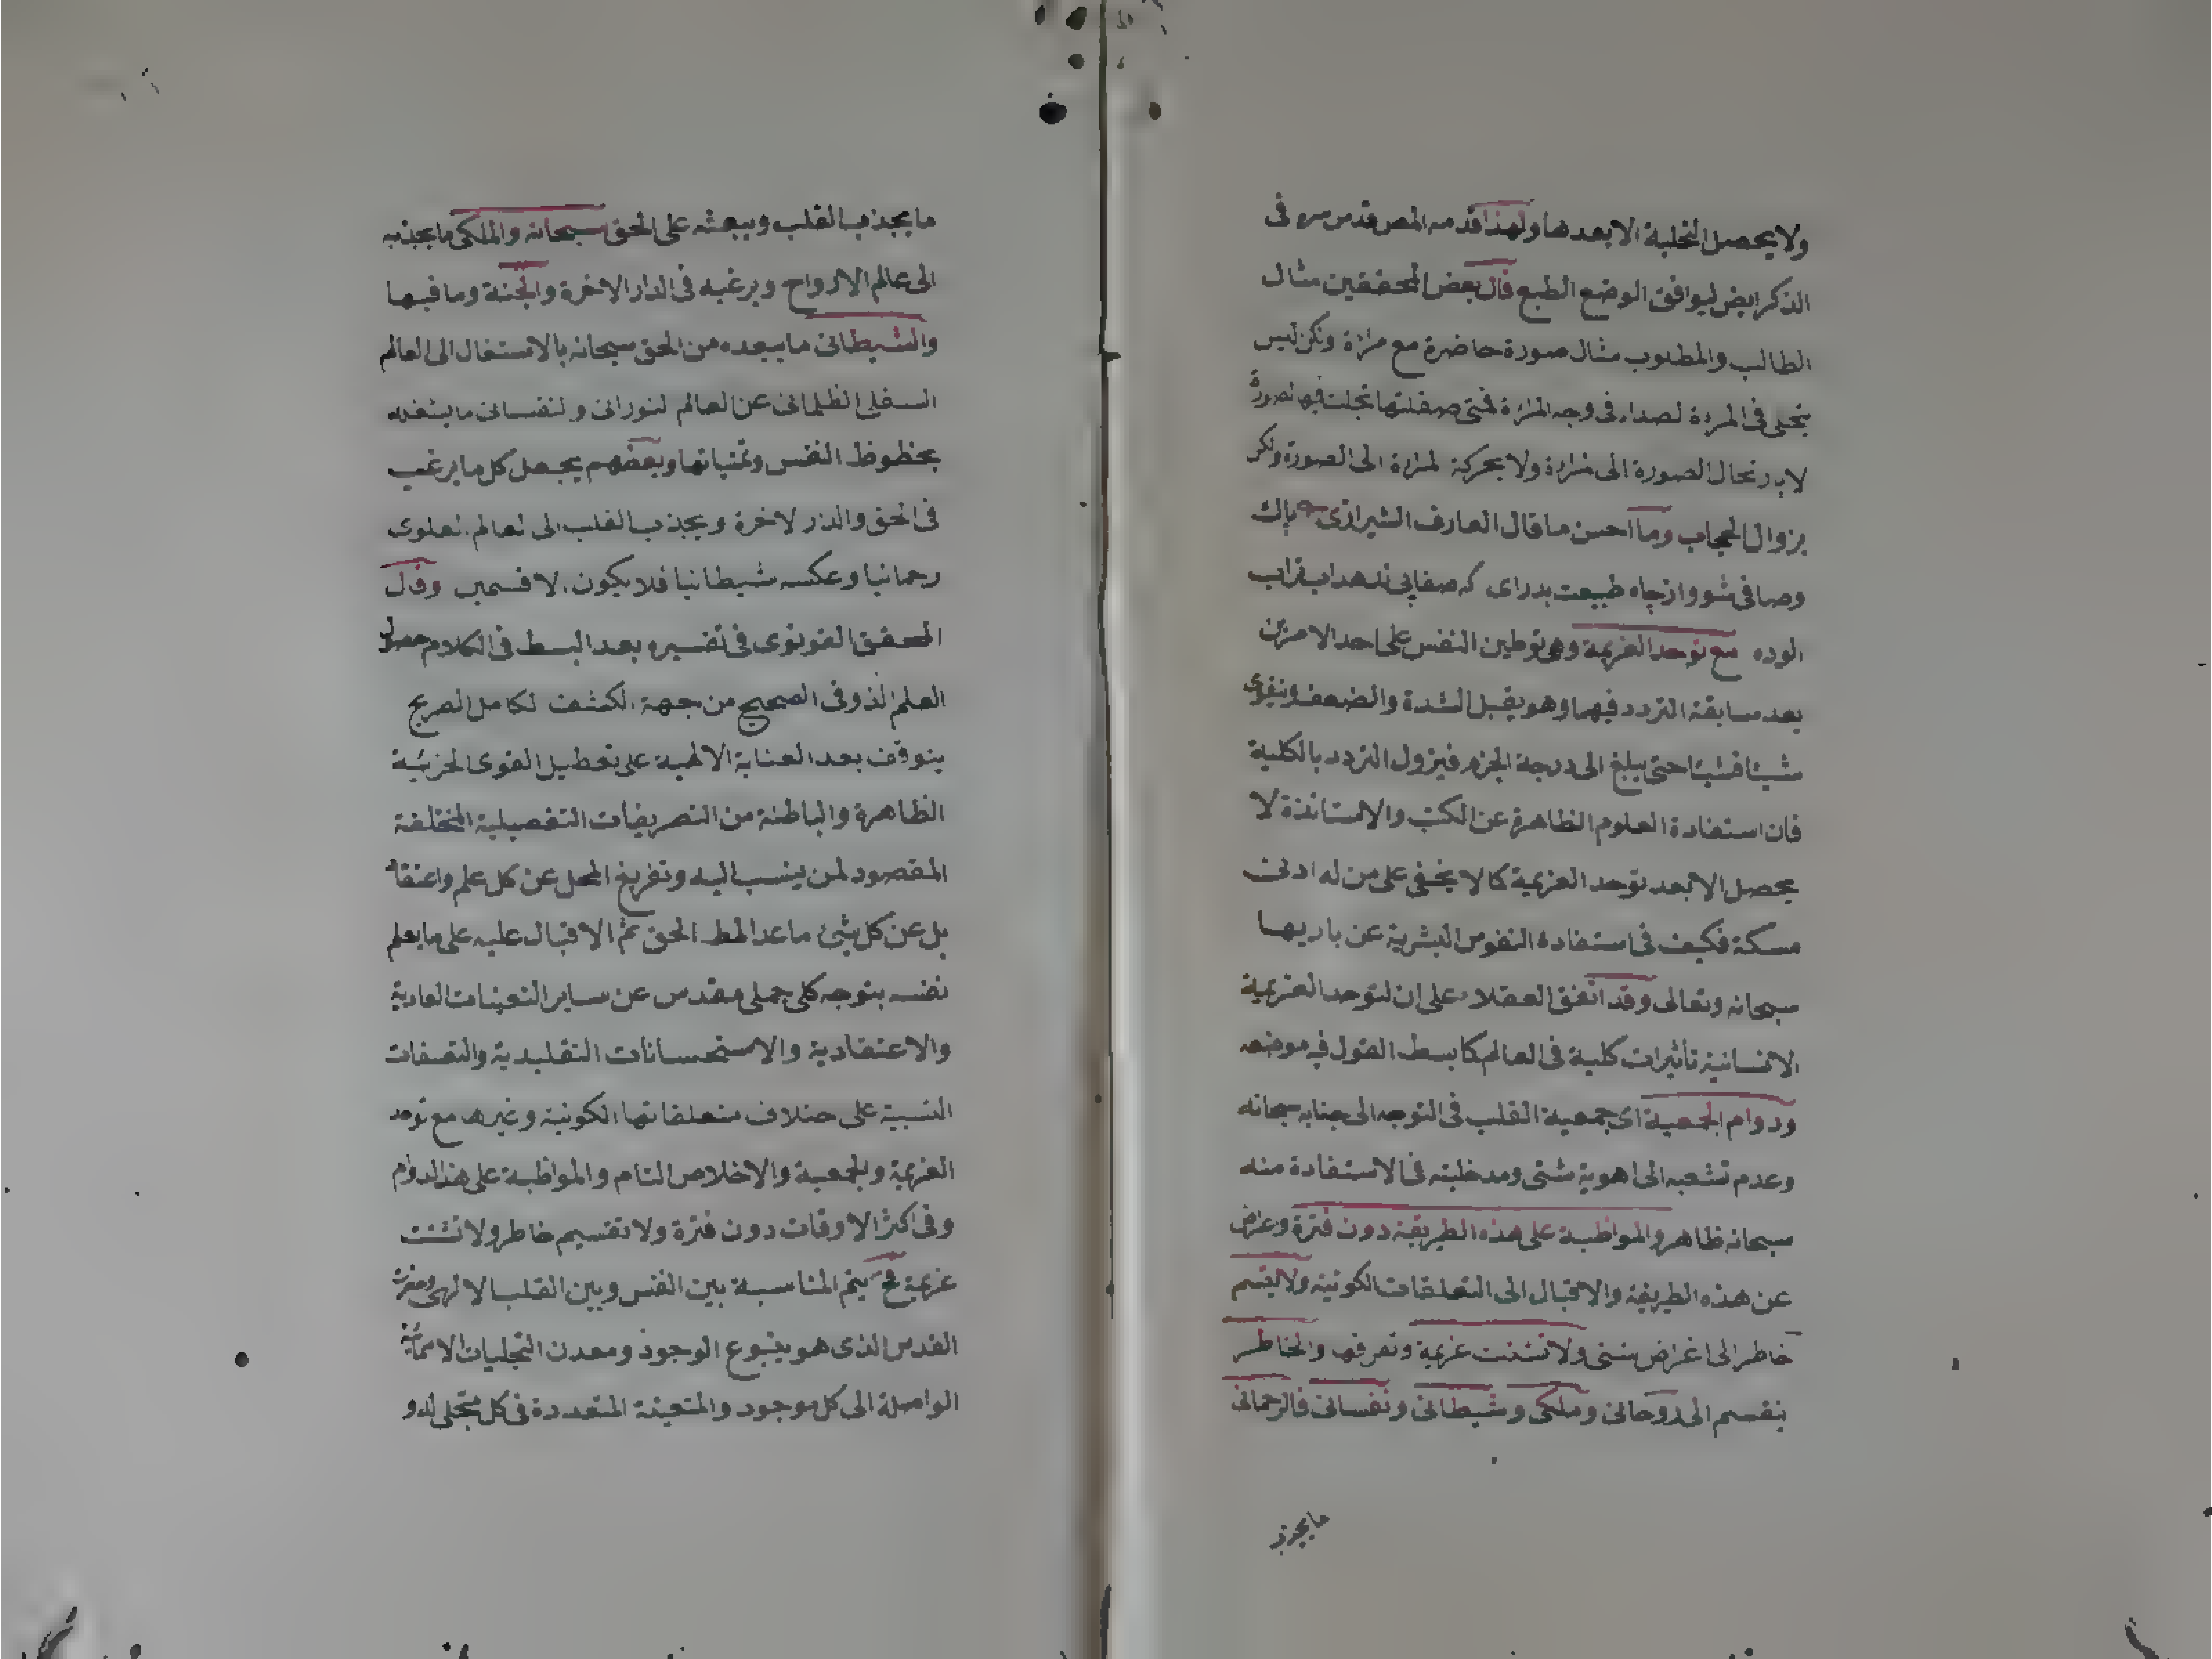 ولا يحصل التخلية الا بعدها ولهذا قدمه المص قدس سره فى
الذكر ايض ليوافق الوضع الطبع قال بعض المحققين مثال
الطالب والمطلوب مثال صورة حاضرة مع مراة ولكن ليس
يتجلى فى المراة لصداء فى وجه المراة فمتى صقلتها تجلت فيها الصورة
لا بارتحال الصورة الى المراة ولا بحركة المراة الى الصورة ولكن
بزوال الحجاب وما احسن ما قال العارف الشيرازى پاك
وصافى شو واز چاه طبيعت بدراى كه صفايى ندهد اب تراب
الوده مع توحد العزيمة وهى توطين النفس على احد الامرين
بعد سابقة التردد فيهما وهو يقبل الشدة والضعف ويتقوى
شيئا فشيئا حتى يبلغ الى درجة الجزم فيزول التردد بالكلية
فان استفادة العلوم الظاهرة عن الكتب والاستاتذة لا
يحصل الا بعد توحد العزيمة كما لا يخفى على من له ادنى
مسكة فكيف فى استفادة النفوس البشرية عن باريها
سبحانه وتعالى وقد اتفق العقلاء على ان لتوحد العزيمة
الانسانية تأثيرات كلية فى العالم كما بسط القول فيه موضعه
ودوام الجمعية اى جمعية القلب فى التوجه الى جنابه سبحانه
وعدم تشعبه الى اهوية شتى ومدخليته فى الاستفادة منه
سبحانه ظاهر والمواظبة على هذه الطريقة دون فترة وعراض
عن هذه الطريقة والاقبال الى التعلقات الكونية ولا يقسم
خاطر الى اغراض شتى ولا تشتت عزيمة وتفرقها والخاطر
ينقسم الى روحانى وملكى وشيطانى ونفسانى فالرحمانى
ما يجذب
ما يجذب القلب ويبعثه على الحق سبحانه والملكى ما يجذبه
الى عالم الارواح ويرغبه فى الدار الاخرة والجنة وما فيها
والشيطانى ما يبعده من الحق سبحانه بالاشتغال الى العالم
السفلى الظلمانى عن العالم النورانى والنفسانى ما يشغله
بحظوظ النفس وتمنياتها وبعضهم يجعل كل ما يرغب
فى الحق والدار الاخرة ويجذب القلب الى العالم العلوى
رحمانيا وعكسه شيطانيا فلا يكون الا قسمين وقال
المحقق القونوى فى تفسيره بعد البسط فى الكلام حصول
العلم الذوقى الصحيح من جهة الكشف الكامل الصريح
يتوقف بعد العناية الالهية على تعطيل القوى الجزئية
الظاهرة والباطنة من التصريفات التفصيلية المختلفة
المقصود لمن ينسب اليه وتفريغ المحل عن كل علم واعتقاد
بل عن كل شئ ما عدا المط الحق ثم الاقبال عليه على ما يعلم
نفسه بتوجه كلى جملى مقدس عن ساير التعينات العادية
والاعتقادية والاستحسانات التقليدية والتعشقات
النسبية على اختلاف متعلقاتها الكونية وغيرها مع توحد
العزيمة والجمعية والاخلاص التام والمواظبة على هذا الدوام
وفى اكثر الاوقات دون فترة ولا تقسيم خاطر ولا تشتت
عزيمة فح يتم المناسبة بين النفس وبين القلب الالهى وحضرت
القدس الذى هو ينبوع الوجود ومعدن التجليات الاسمائية
الواصلة الى كل موجود والمتعينة المتعددة فى كل متجلى له و